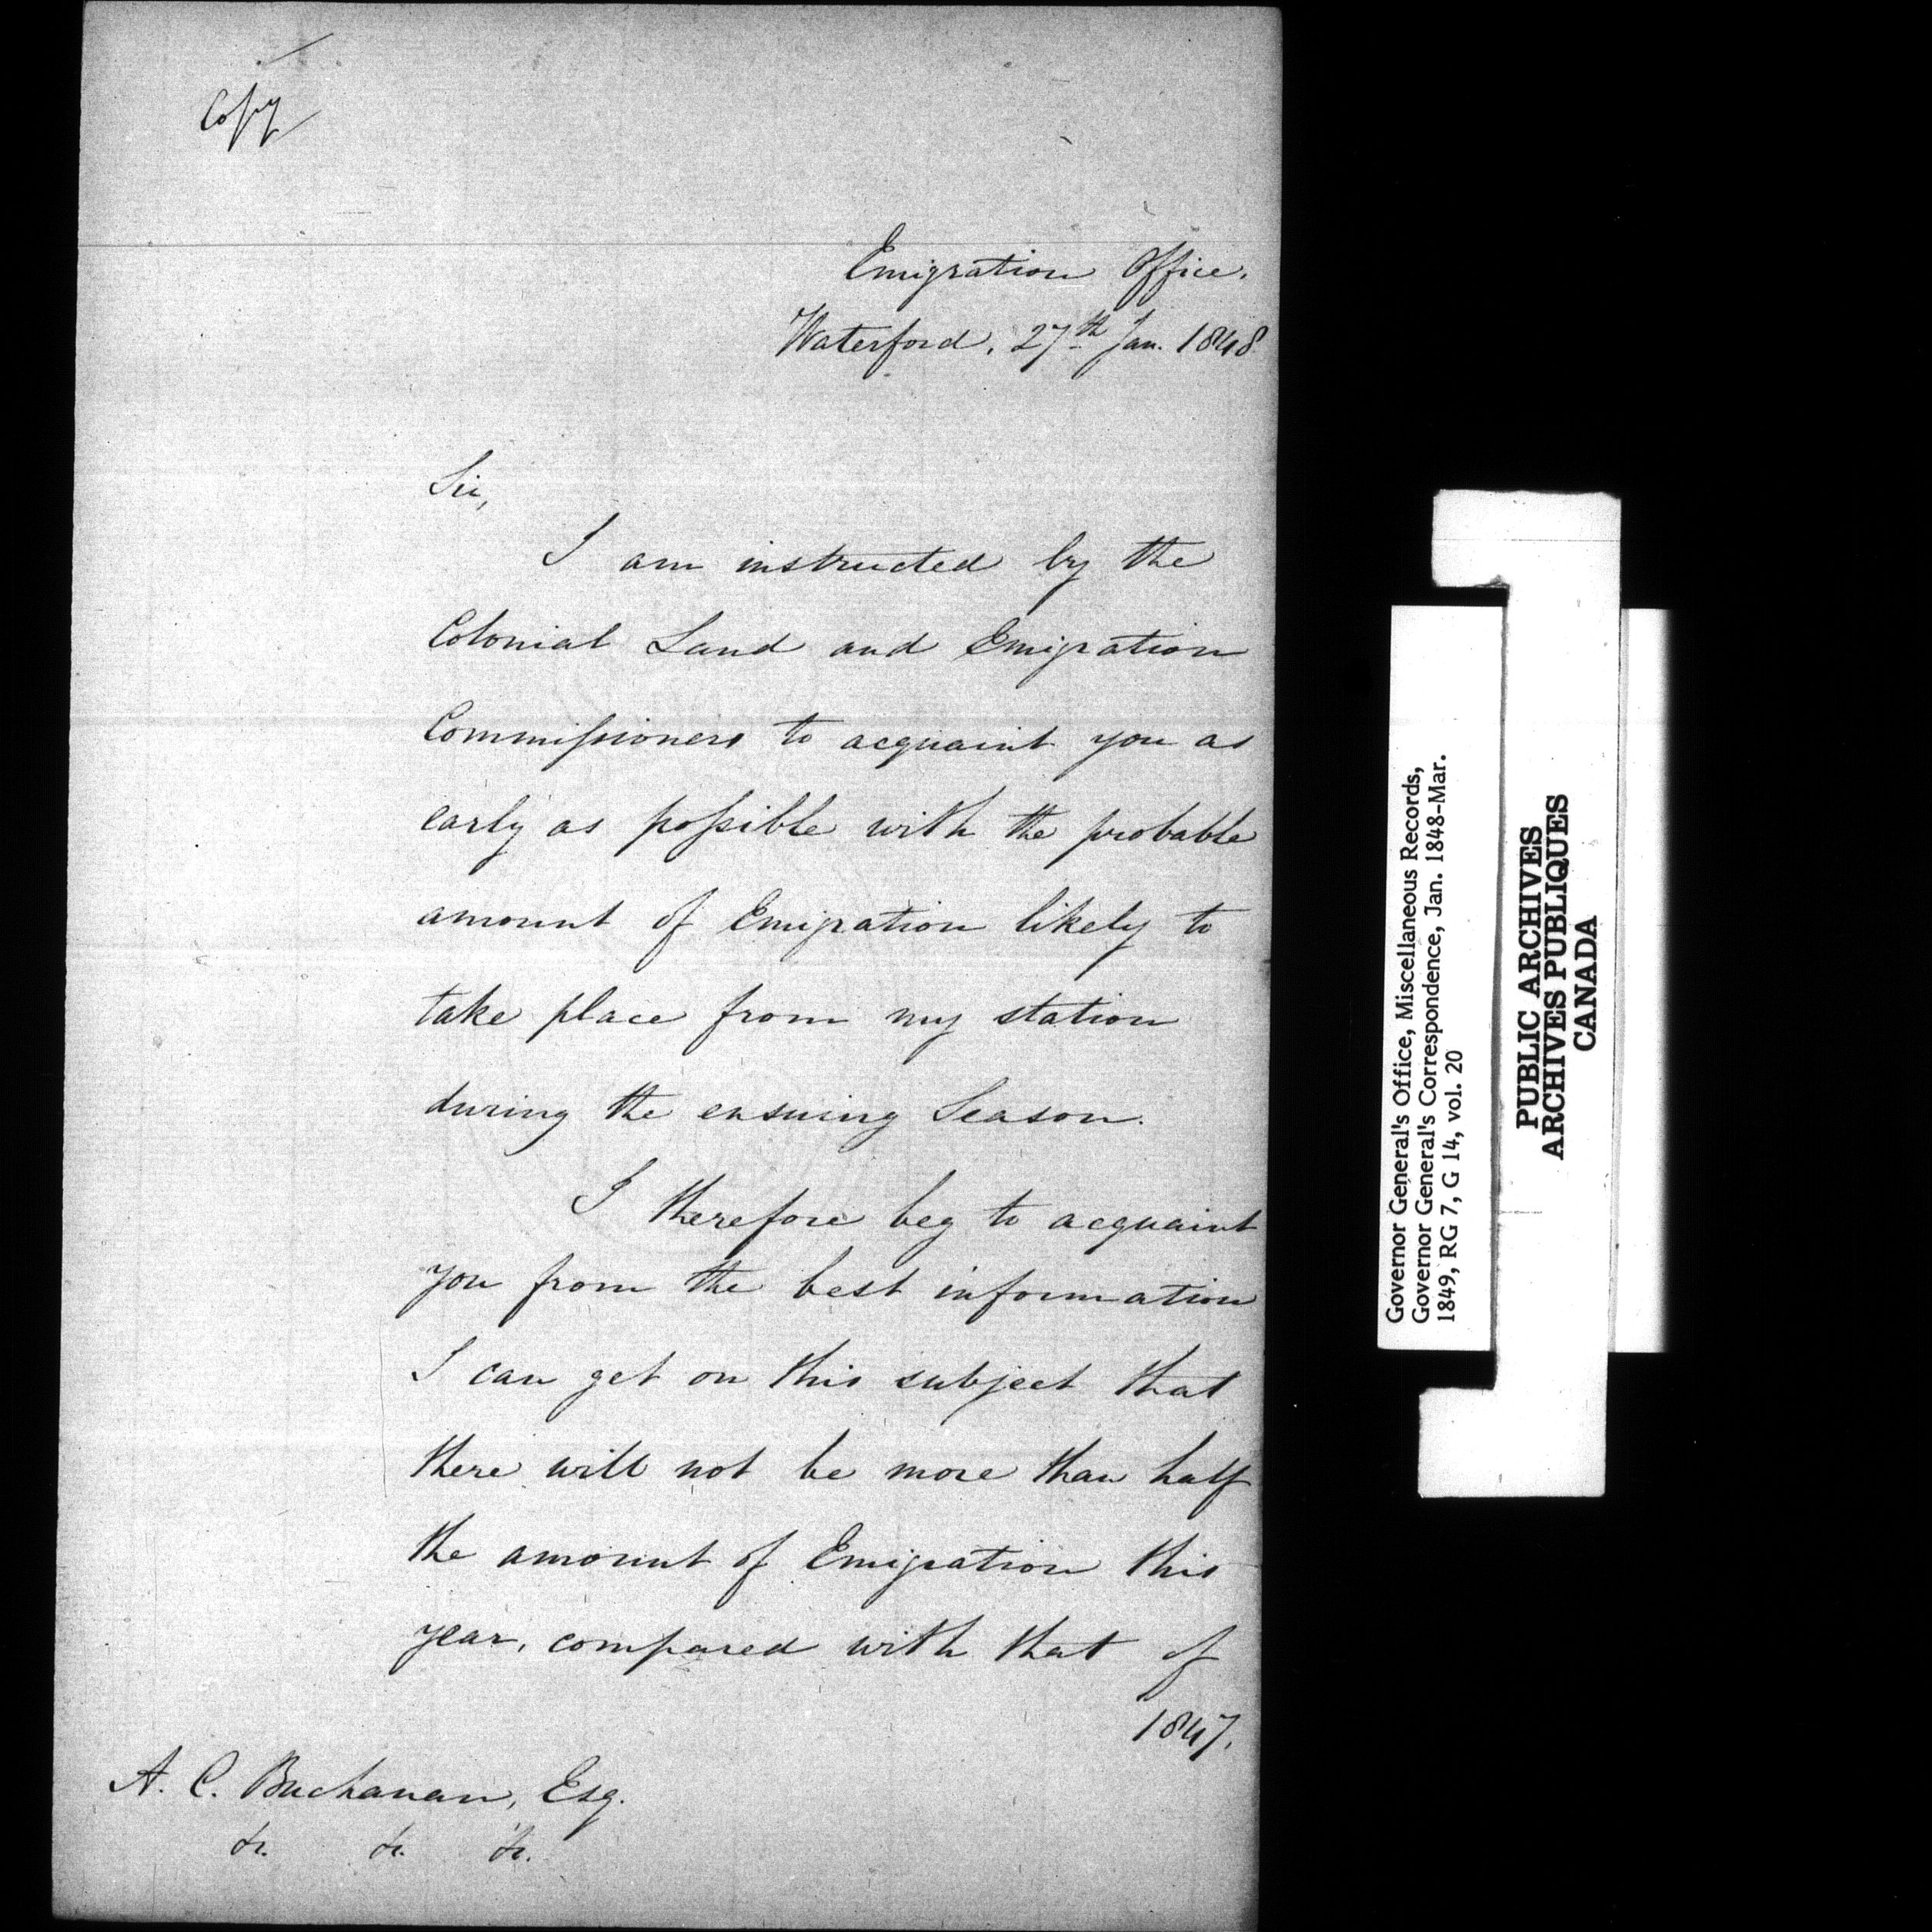 Copy
Emigration Office.
Waterford, 27th Jan. 1848
Sir,
I am instructed by the
Colonial Land and Emigration
Commissioners to acquaint you as
early as possible with the probable
amount of Emigration likely to
take place from my station
during the ensuing Season.
I therefore beg to acquaint
you from the best information
I can get on this subject that
there will not be more than half
the amount of Emigration this
year, compared with that of
1847.
A. C. Buchanan, Esq.
&c. &c. &c.
Governor General's Office, Miscellaneous Records,
Governor General's Correspondence, Jan. 1848-Mar.
1849, RG 7, G 14, vol. 20
PUBLIC ARCHIVES
ARCHIVES PUBLIQUES
CANADA